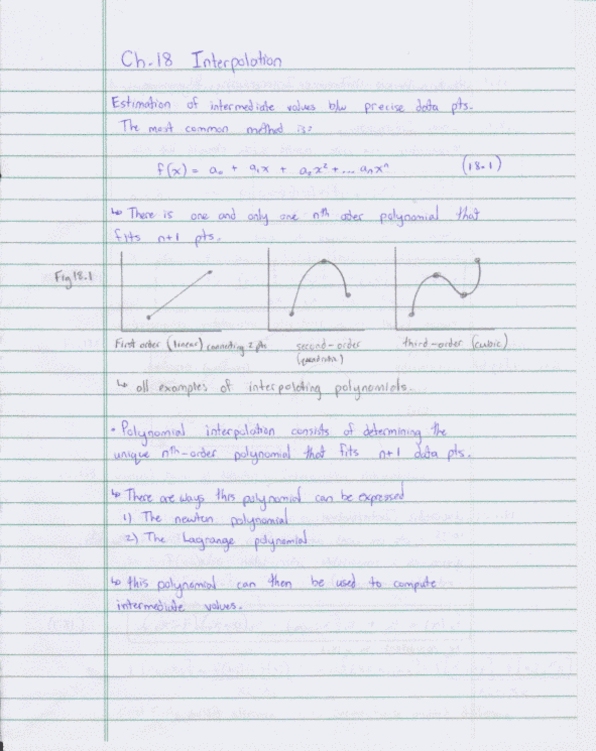 Ch.18 Interpolation
Estimation of intermediate values b/w precise data pts.
The most common method is:
f(x) = a₀ + a₁x + a₂x² + ... aₙxⁿ (18.1)
↳ There is one and only one nth oder polynomial that
fits n+1 pts.
Fig 18.1
First order (linear) connecting 2 pts
second-order
(quadratic)
third-order (cubic)
↳ all examples of interpolating polynomials.
• Polynomial interpolation consists of determining the
unique nth-order polynomial that fits n+1 data pts.
↳ There are ways this polynomial can be expressed
1) The newton polynomial
2) The Lagrange polynomial
↳ this polynomial can then be used to compute
intermediate values.